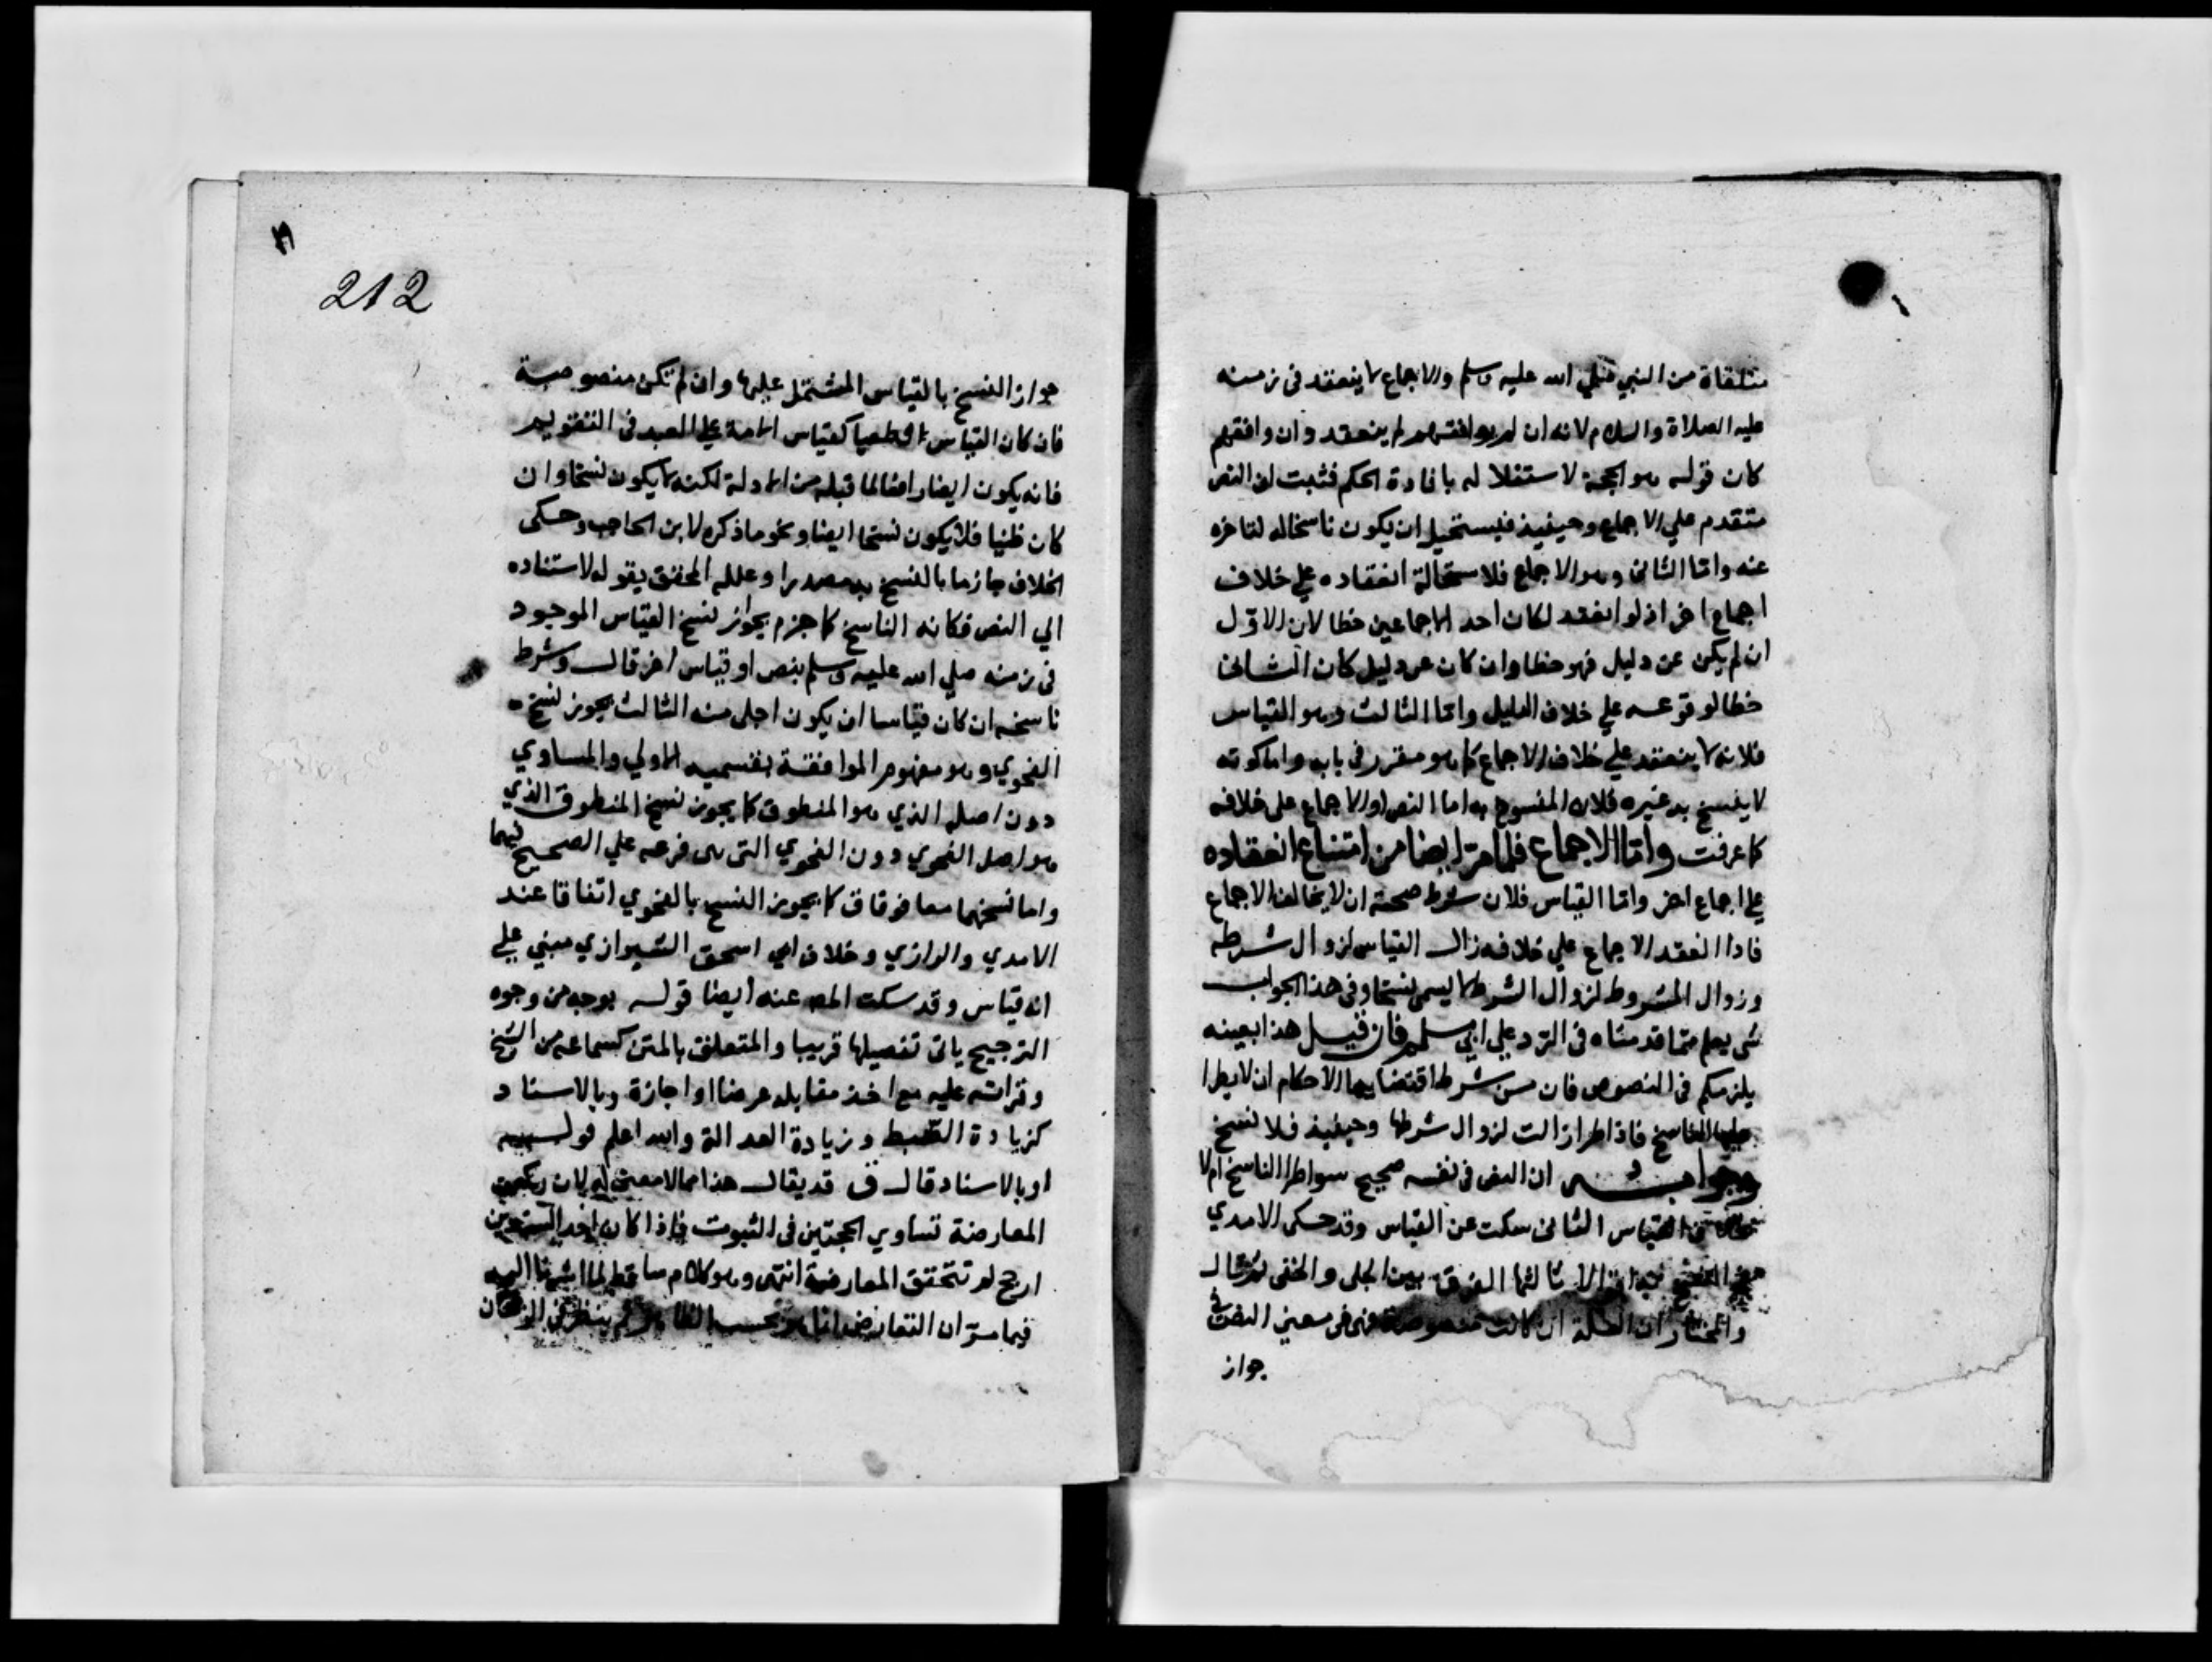 متلقاة من النبي صلي الله عليه وسلم والاجماع لا ينعقد فى زمنه
عليه الصلاة والسلام لانه ان لم يوافقهم لم ينعقد وان وافقهم
كان قوله هو الحجة لاستقلاله بافادة الحكم فثبت ان النص
متقدم علي الاجماع وحينيذ فيستحيل ان يكون ناسخا له لتاخره
عنه واما الثانى وهو الاجماع فلاستحالة انعقاده علي خلاف
اجماع اخر اذ لو انعقد لكان احد الاجماعين خطا لان الاول
ان لم يكن عن دليل فهو خطا وان كان عن دليل كان الثانى
خطا لوقوعه علي خلاف الدليل واما الثالث وهو القياس
فلانه لا ينعقد علي خلاف الاجماع كما هو مقرر فى بابه واما كونه
لا ينسخ به غيره فلان المنسوخ به اما النص او الاجماع على خلافه
كما عرفت واما الاجماع فلما مر ايضا من امتناع انعقاده
علي اجماع اخر واما القياس فلان شرط صحته ان لا يخالف الاجماع
فاذا انعقد الاجماع علي خلافه زال القياس لزوال شرطه
وزوال المشروط لزوال الشرط لا يسمى نسخا وفى هذا الجواب
شى يعلم مما قدمناه فى الرد علي ابي مسلم فان قيل هذا بعينه
يلزمكم فى النصوص فان من شرط اقتضايها الاحكام ان لا يطرا
عليها الناسخ فاذا طرا زالت لزوال شرطها وحينيذ فلا نسخ
وجوابه ان النص فى نفسه صحيح سوا طرا الناسخ ام لا
القياس الثانى سكت عن القياس وقد حكى الامدي
ثالثها الفرق بين الجلى والخفى ثم قال
والمختار ان العلة ان كانت منصوصة فهى فى معني النص فى
جواز
212
جواز النسخ بالقياس المشتمل عليها وان لم تكن منصوصة
فان كان القياس قطعيا كقياس الامة علي العبد فى التقويم
فانه يكون ايضا رافعا لما قبله من الادلة لكنه لا يكون نسخا وان
كان ظنيا فلا يكون نسخا ايضا ونحو ما ذكره لابن الحاجب وحكى
الخلاف جازما بالنسخ به مصدرا وعلله المحقق بقوله لاستناده
الي النص فكانه الناسخ كما جزم بجواز نسخ القياس الموجود
فى زمنه صلي الله عليه وسلم بنص او قياس اخر قال وشرط
ناسخه ان كان قياسا ان يكون اجلى منه الثالث يجوز نسخ
الفحوي وهو مفهوم الموافقة بقسميه الاولي والمساوي
دون اصله الذي هو المنطوق كما يجوز نسخ المنطوق الذي
هو اصل الفحوي دون الفحوي التى هى فرعه علي الصحيح فيهما
واما نسخهما معا فوفاق كما يجوز النسخ بالفحوي اتفاقا عند
الامدي والرازي وخلاف ابي اسحق الشيرازي مبني علي
انه قياس وقد سكت المص عنه ايضا قوله بوجه من وجوه
الترجيح ياتى تفصيلها قريبا والمتعلق بالمتن كسماعه من الشيخ
وقراته عليه مع اخذ مقابله عرضا او اجازة وبالاسناد
كزيادة الضبط وزيادة العدالة والله اعلم قوله
او بالاسناد قال ق قد يقال هذا مما لا معنى له لان ركن
المعارضة تساوي الحجتين فى الثبوت فاذا كان احد السندين
ارجح لم تتحقق المعارضة انتهى وهو كلام ساقط لما اشرنا اليه
فيما مر ان التعارض انما هو بحسب الظاهر